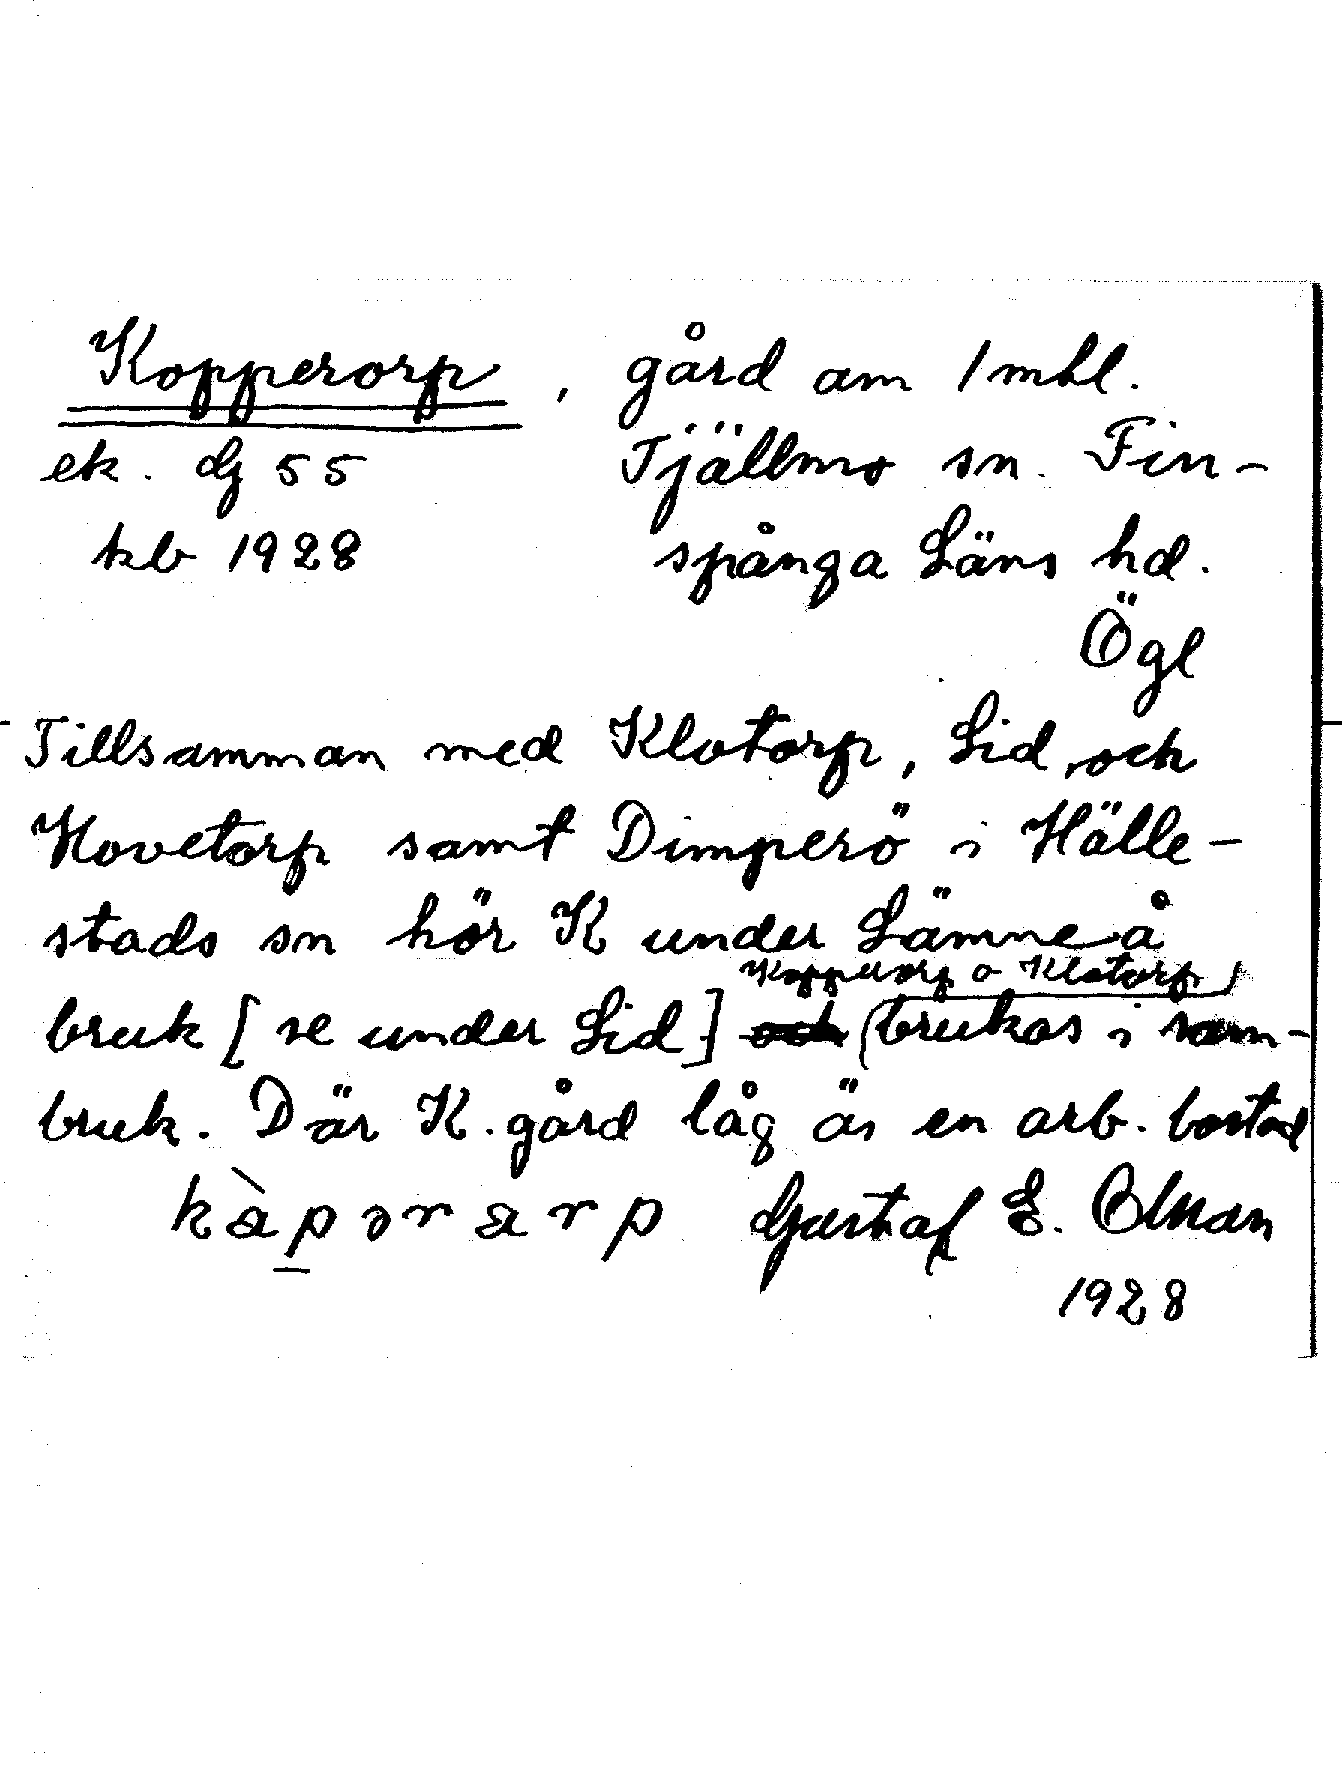 Kopperorp, gård am 1 mtl.
ek. dj 55 Tjällmo sn. Fin-
kb 1928 spånga Läns hd.
Ögl
Tillsamman med Klotorp, Lid, och
Hovetorp samt Dimperö i Hälle-
stads sn hör K under Lämneå
Kopperorp o Klotorp
bruk [se under Lid] och brukas i sam-
bruk. Där K. gård låg äs en arb. bostad
kàpərarp Gustaf E. Olman
1928